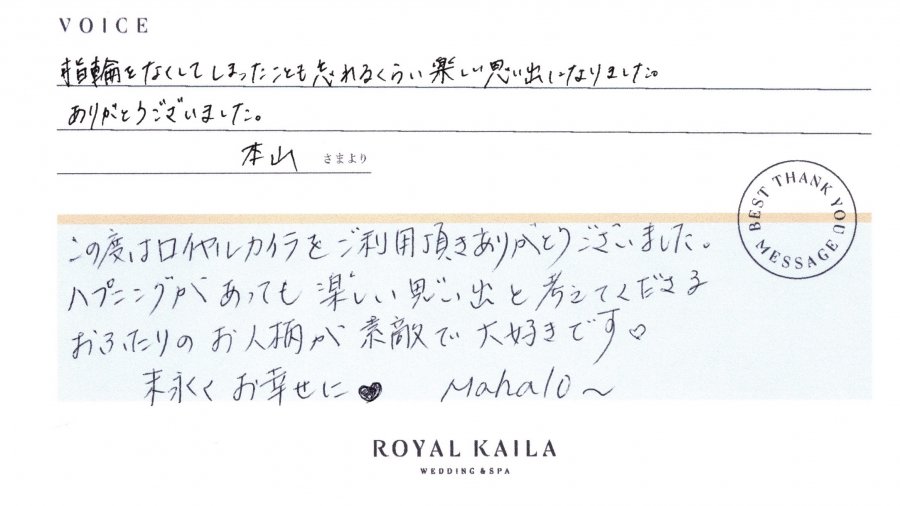 VOICE
指輪をなくしてしまったことも忘れるくらい楽しい思い出になりました。
ありがとうございました。
本山 さまより
BEST THANK YOU MESSAGE
この度はロイヤルカイラをご利用頂きありがとうございました。
ハプニングがあっても楽しい思い出と考えてくださる
おふたりのお人柄が素敵で大好きです♡
末永くお幸せに♥ Mahalo~
ROYAL KAILA
WEDDING & SPA